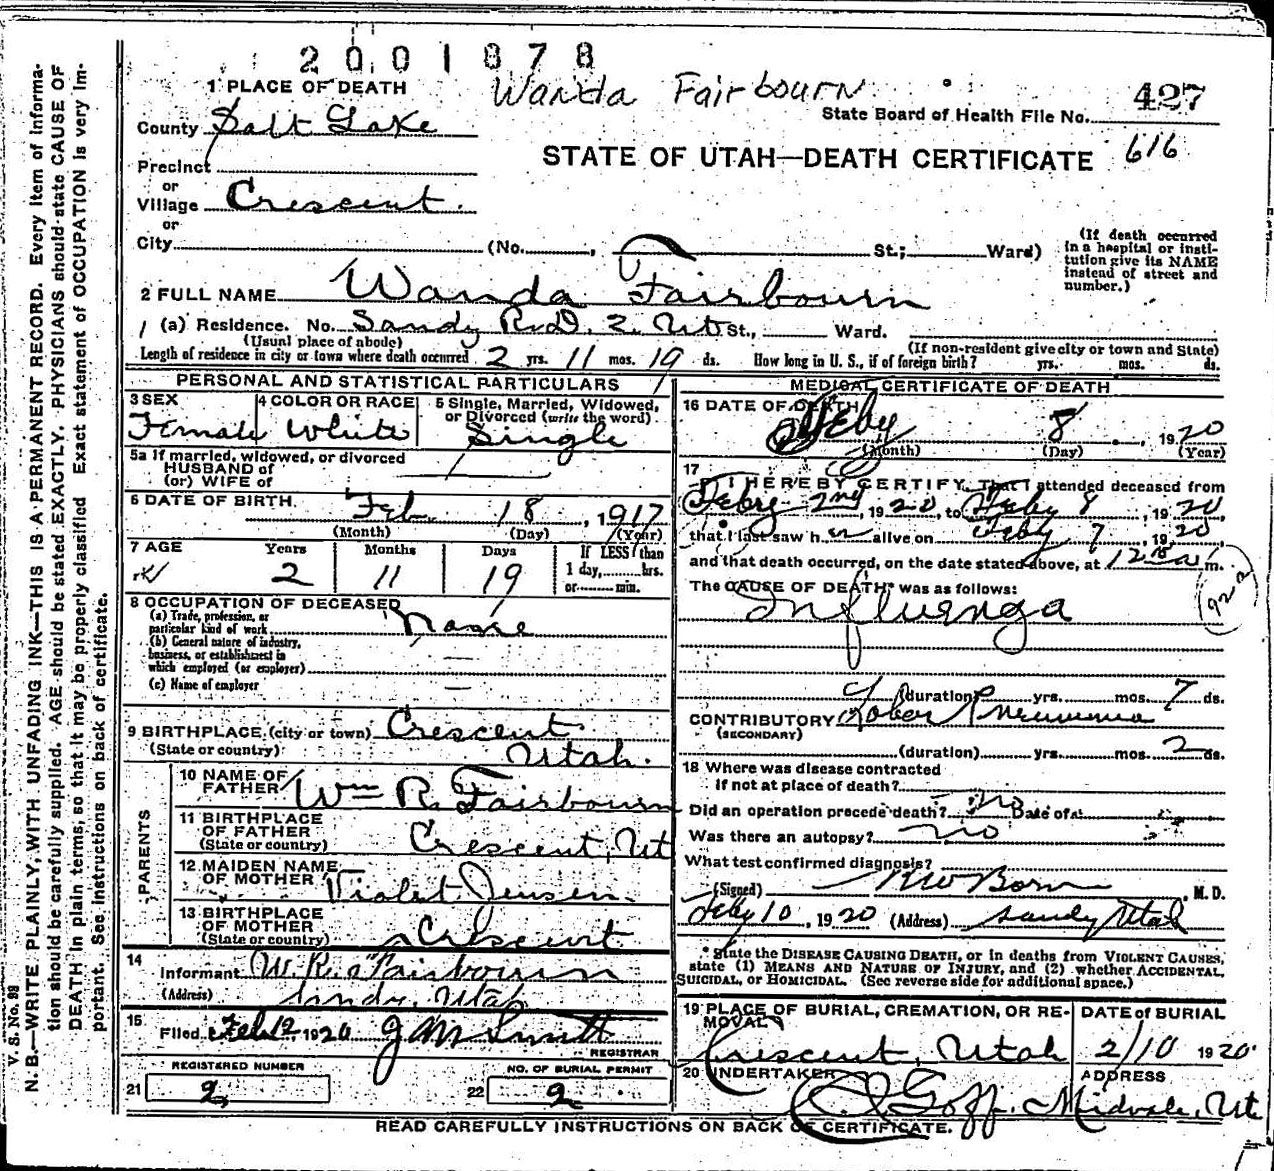 2001878
1 PLACE OF DEATH
Wanda Fairbourn
State Board of Health File No. 427
County Salt Lake
616
STATE OF UTAH—DEATH CERTIFICATE
Precinct
or
Village Crescent.
or
City (No. , St.; Ward)
(If death occurred
in a hospital or insti-
tution give its NAME
instead of street and
number.)
2 FULL NAME Wanda Fairbourn
(a) Residence. No. Sandy R.D. 2. Ut St., Ward.
(Usual place of abode) (If non-resident give city or town and State)
Length of residence in city or town where death occurred 2 yrs. 11 mos. 19 ds. How long in U. S., if of foreign birth? yrs. mos. ds.
PERSONAL AND STATISTICAL PARTICULARS
3 SEX
Female
4 COLOR OR RACE
White
5 Single, Married, Widowed,
or Divorced (write the word)
Single
5a If married, widowed, or divorced
HUSBAND of
(or) WIFE of
6 DATE OF BIRTH
Feb. 18, 1917
(Month) (Day) (Year)
7 AGE Years Months Days If LESS than
1 day, hrs.
or min.
2 11 19
8 OCCUPATION OF DECEASED
(a) Trade, profession, or
particular kind of work None
(b) General nature of industry,
business, or establishment in
which employed (or employer)
(c) Name of employer
9 BIRTHPLACE (city or town) Crescent
(State or country) Utah.
PARENTS
10 NAME OF
FATHER Wm R. Fairbourn
11 BIRTHPLACE
OF FATHER
(State or country) Crescent, Ut
12 MAIDEN NAME
OF MOTHER Violet Jensen.
13 BIRTHPLACE
OF MOTHER
(State or country) Crescent
14
Informant W. R. Fairbourn
(Address) Sandy, Utah
15
Filed Feb 12, 1920 J M Smith
REGISTRAR
REGISTERED NUMBER
21 2
NO. OF BURIAL PERMIT
22 2
MEDICAL CERTIFICATE OF DEATH
16 DATE OF DEATH
Feby 8, 1920
(Month) (Day) (Year)
17
I HEREBY CERTIFY, That I attended deceased from
Feby 2nd, 1920, to Feby 8, 1920,
that I last saw her alive on Feby 7, 1920,
and that death occurred, on the date stated above, at 12 a m.
The CAUSE OF DEATH* was as follows:
Influenza
92
(duration) yrs. mos. 7 ds.
CONTRIBUTORY Lobar Pneumonia
(SECONDARY)
(duration) yrs. mos. 2 ds.
18 Where was disease contracted
if not at place of death?
Did an operation precede death? no Date of
Was there an autopsy? no
What test confirmed diagnosis?
(Signed) M.D.
Feby 10, 1920 (Address) Sandy Utah
* State the DISEASE CAUSING DEATH, or in deaths from VIOLENT CAUSES,
state (1) MEANS AND NATURE OF INJURY, and (2) whether ACCIDENTAL,
SUICIDAL, or HOMICIDAL. (See reverse side for additional space.)
19 PLACE OF BURIAL, CREMATION, OR RE-
MOVAL
Crescent, Utah
DATE of BURIAL
2/10 1920
20 UNDERTAKER
Goff.
ADDRESS
Midvale, Ut
READ CAREFULLY INSTRUCTIONS ON BACK OF CERTIFICATE.
V. S. No. 98
N. B.—WRITE PLAINLY, WITH UNFADING INK—THIS IS A PERMANENT RECORD. Every item of informa-
tion should be carefully supplied. AGE should be stated EXACTLY. PHYSICIANS should state CAUSE OF
DEATH in plain terms, so that it may be properly classified. Exact statement of OCCUPATION is very im-
portant. See instructions on back of certificate.